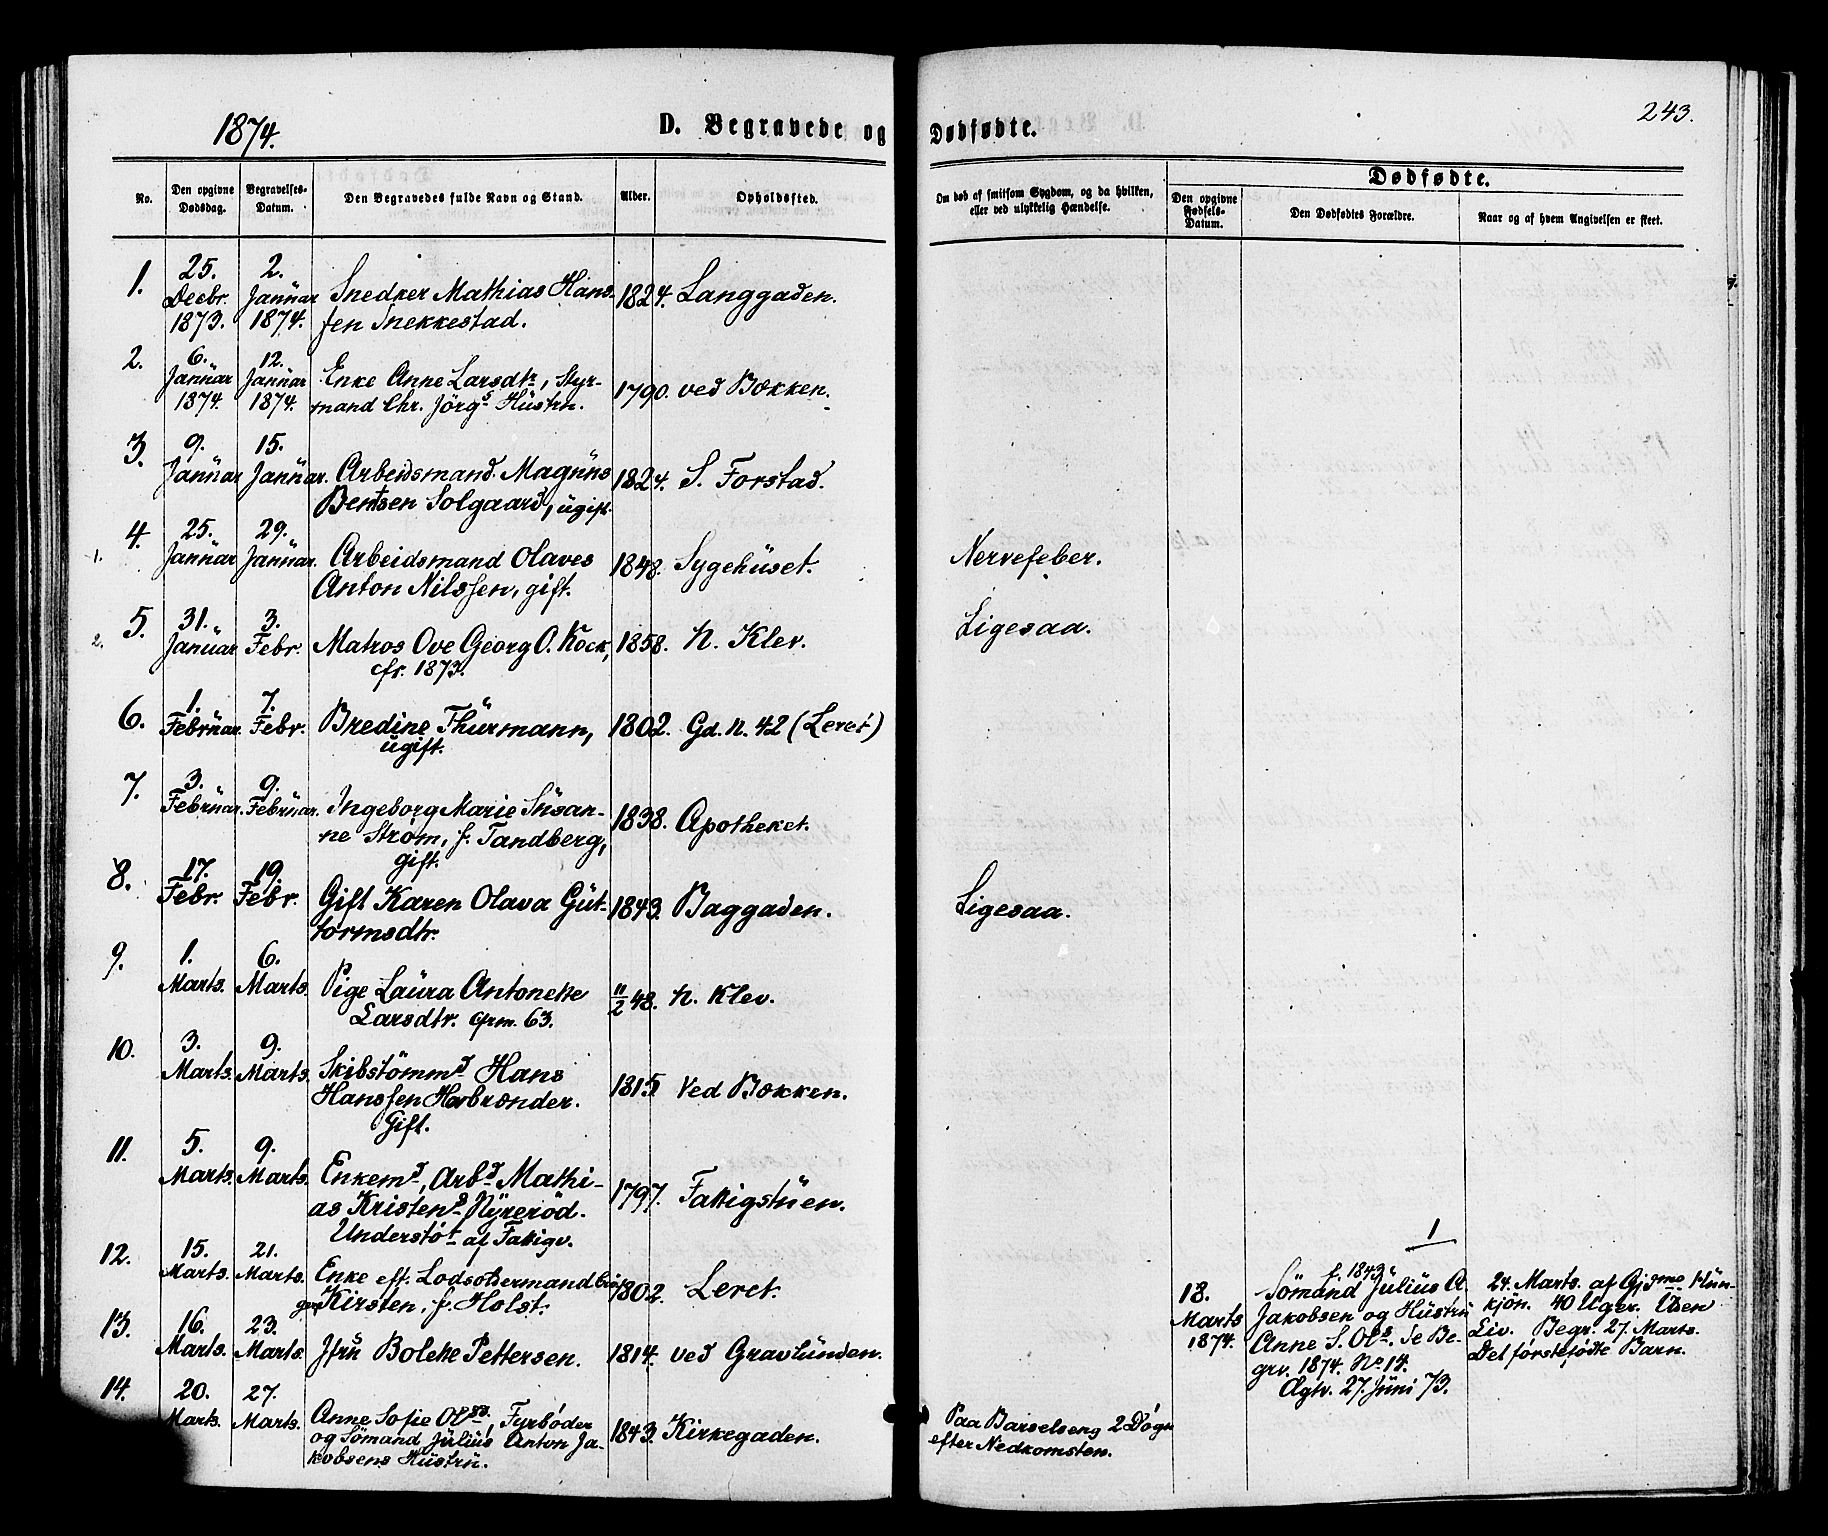 1874.
D. Begravede og Dødfødte.
243.
No.
Den opgivne Dødsdag.
Begravelses-Datum.
Den Begravedes fulde Navn og Stand.
Alder.
Opholdssted.
Om død af smitsom Sygdom, og da hvilken,
eller ved ulykkelig Hændelse.
Dødfødte.
Den opgivne Fødsels-Datum.
Den Dødfødtes Forældre.
Naar og af hvem Angivelsen er skeet.
1. 25. Decbr. 1873. 2. Januar 1874. Snedker Mathias Hans-
sen Snekkestad. 1824. Langgaden.
2. 6. Januar 1874. 12. Januar 1874. Enke Anne Larsdtr, Styr-
mand Chr. Jörgs Hustru. 1790. ved Bækken.
3. 9. Januar 15. Januar. Arbeidsmand Magnus
Berntsen Solgaard, ugift. 1824. S. Forstad.
1. 4. 25. Januar 29. Januar. Arbeidsmand Olaves
Anton Nilssen, gift. 1848. Sygehuset. Nervefeber.
2. 5. 31. Januar 3. Febr. Matros Ove Georg O. Kock,
cfr. 1873. 1858. N. Klev. Ligesaa.
6. 1. Februar. 7. Febr. Bredine Thurmann,
ugift. 1802. Gd. N. 42 (Leret)
7. 3. Februar. 9. Februar. Ingeborg Marie Susan-
ne Strøm, f. Tandberg,
gift. 1838. Apotheket.
8. 17. Febr. 19. Febr. Gift Karen Olava Gut-
tormsdtr. 1843. Baggaden. Ligesaa.
9. 1. Marts. 6. Marts. Pige Laura Antonette
Larsdtr. cfrm. 63. 11/2 48. N. Klev.
10. 3. Marts. 9. Marts. Skibstömmd Hans
Hanssen Havbrænder.
Gift. 1815 Ved Bækken.
11. 5. Marts. 9. Marts. Enkemd, Arbd Mathi-
as Kristens Nyreröd.
Understöt af Fattigv. 1797. Fattigstuen.
12. 15. Marts. 21. Marts. Enke eft. Lodsoldermand
Kirsten, f. Holst. 1802. Leret.
13. 16. Marts. 23. Marts. Jfru Bolette Pettersen. 1814. ved Gravlunden.
14. 20. Marts. 27. Marts. Anne Sofie Olsd., Fyrbøder
og Sömand Julius Anton Ja-
kobsens Hustru. 1843. Kirkegaden. Paa Barselseng 2 Døgn
efter Nedkomsten.
1
18. Marts 1874.
f. 1843
Sömand Julius A.
Jakobsen og Hustru
Anne S. Ols. se Be-
grv. 1874. No 14.
Ægtv. 27. Juni 73.
24. Marts. af Gjdme. Hun-
kjön. 40 Uger. Uden
Liv. Begr. 27. Marts.
Det förstefödte Barn.